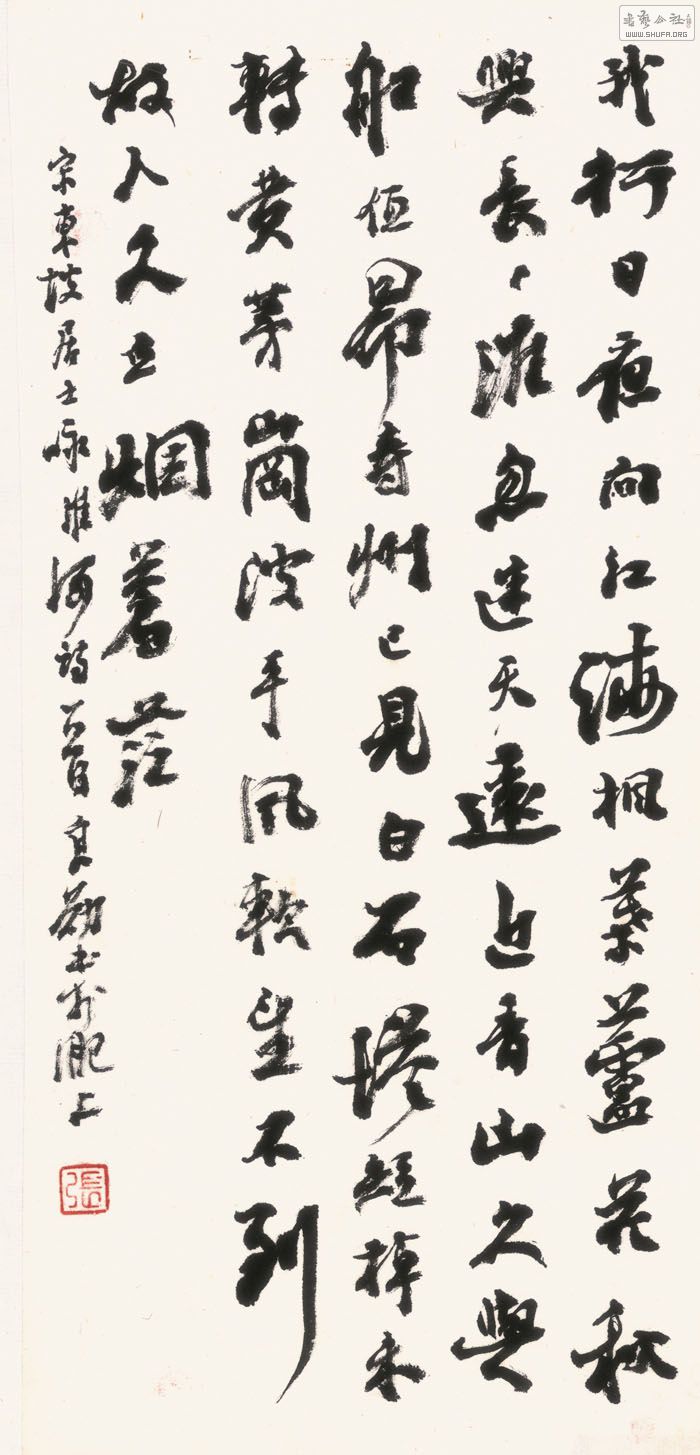 我行日夜向江海楓葉蘆花秋
興長〻淮忽迷天遠近青山久與
船低昂壽州已見白石塔短棹未
轉黄茅崗波平風軟望不到
故人久立烟蒼茫
宋東坡居士咏淮河詩一首良勳書於淝上
張
書藝公社
WWW.SHUFA.ORG